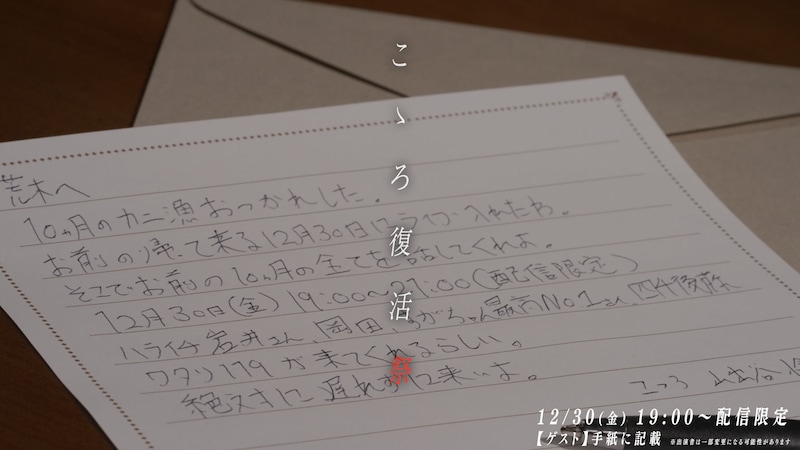 こゝろ復活祭
荒木へ
10ヵ月のカニ漁おつかれした。
お前の帰って来る12月30日にライブ入れたわ。
そこでお前の10ヵ月の全てを話してくれよ。
12月30日(金) 19:00〜21:00(配信限定)
ハライチ岩井さん、岡田、すがちゃん最高No1さん、四千後藤
ワタリ119が来てくれるらしい。
絶対に遅れずに来いよ。
こゝろ 山出谷
12/30(金) 19:00〜配信限定
【ゲスト】手紙に記載 ※出演者は一部変更になる可能性があります